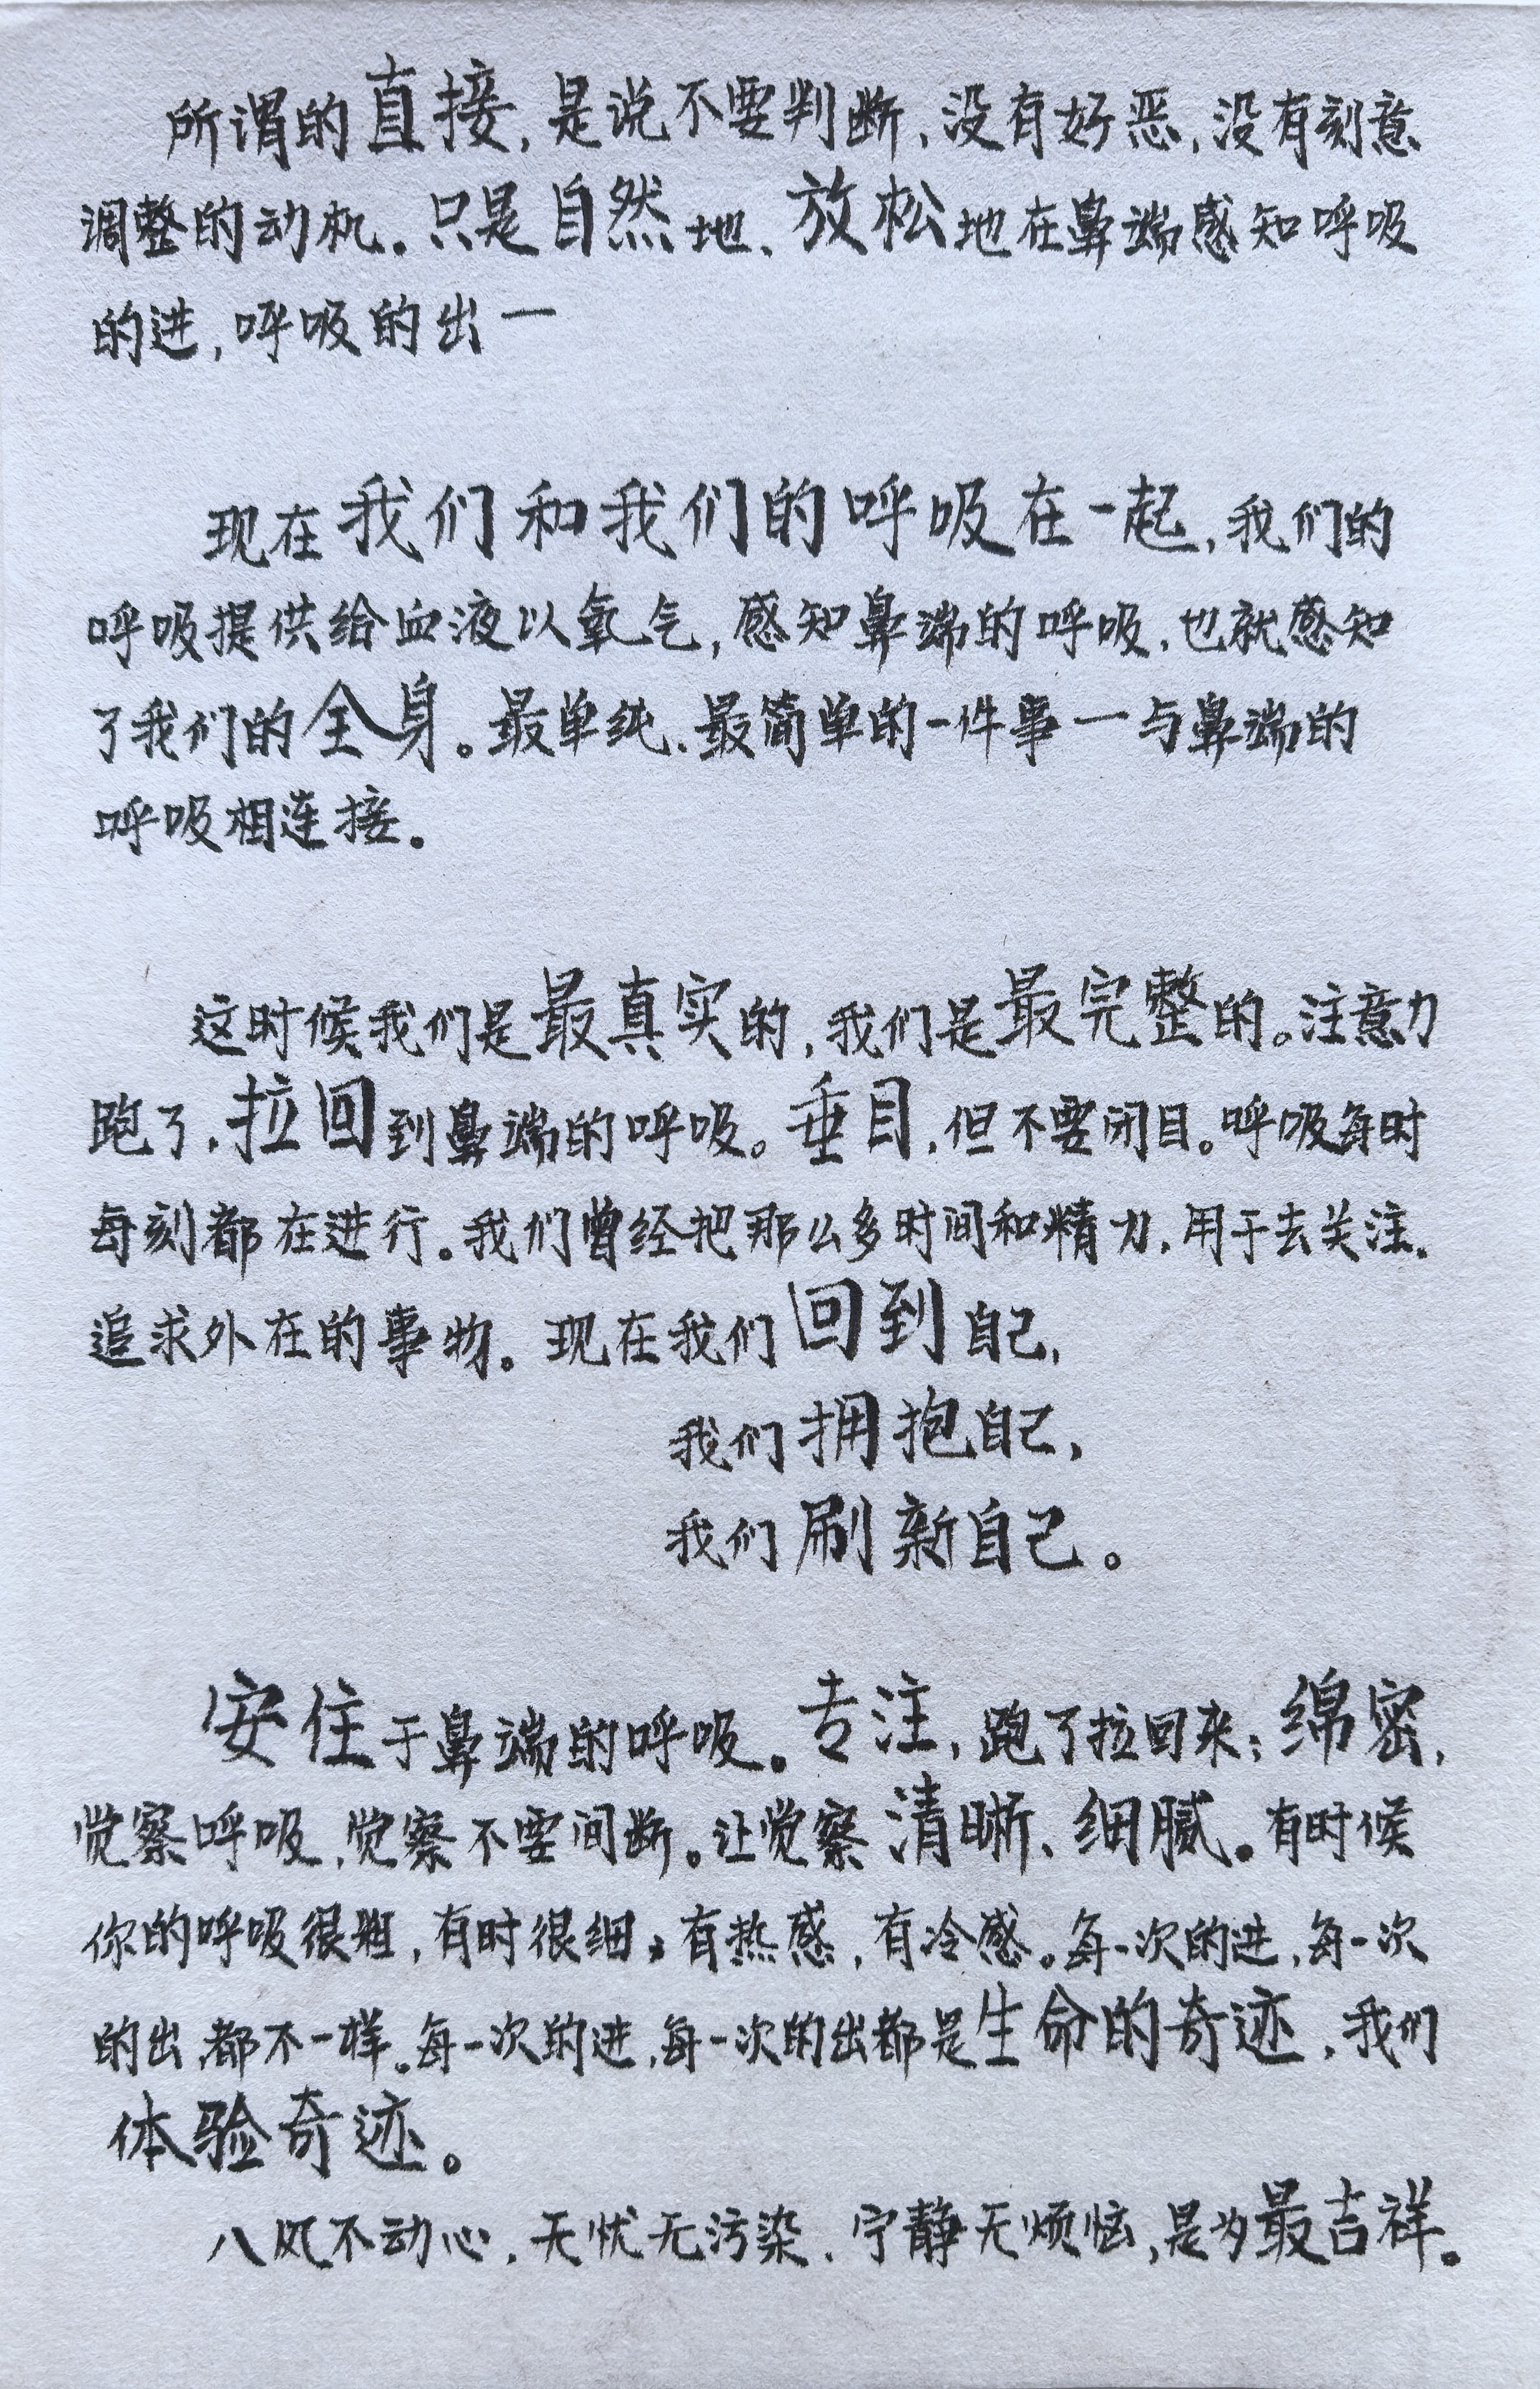 所谓的直接，是说不要判断，没有好恶，没有刻意
调整的动机。只是自然地、放松地在鼻端感知呼吸
的进，呼吸的出一
现在我们和我们的呼吸在一起，我们的
呼吸提供给血液以氧气，感知鼻端的呼吸，也就感知
了我们的全身。最单纯、最简单的一件事一与鼻端的
呼吸相连接。
这时候我们是最真实的，我们是最完整的。注意力
跑了，拉回到鼻端的呼吸。垂目，但不要闭目。呼吸每时
每刻都在进行。我们曾经把那么多时间和精力，用于去关注、
追求外在的事物。现在我们回到自己，
我们拥抱自己，
我们刷新自己。
安住于鼻端的呼吸。专注，跑了拉回来；绵密，
觉察呼吸，觉察不要间断。让觉察清晰、细腻。有时候
你的呼吸很粗，有时很细，有热感，有冷感。每一次的进，每一次
的出，都不一样。每一次的进，每一次的出都是生命的奇迹，我们
体验奇迹。
八风不动心，无忧无污染，宁静无烦恼，是为最吉祥。